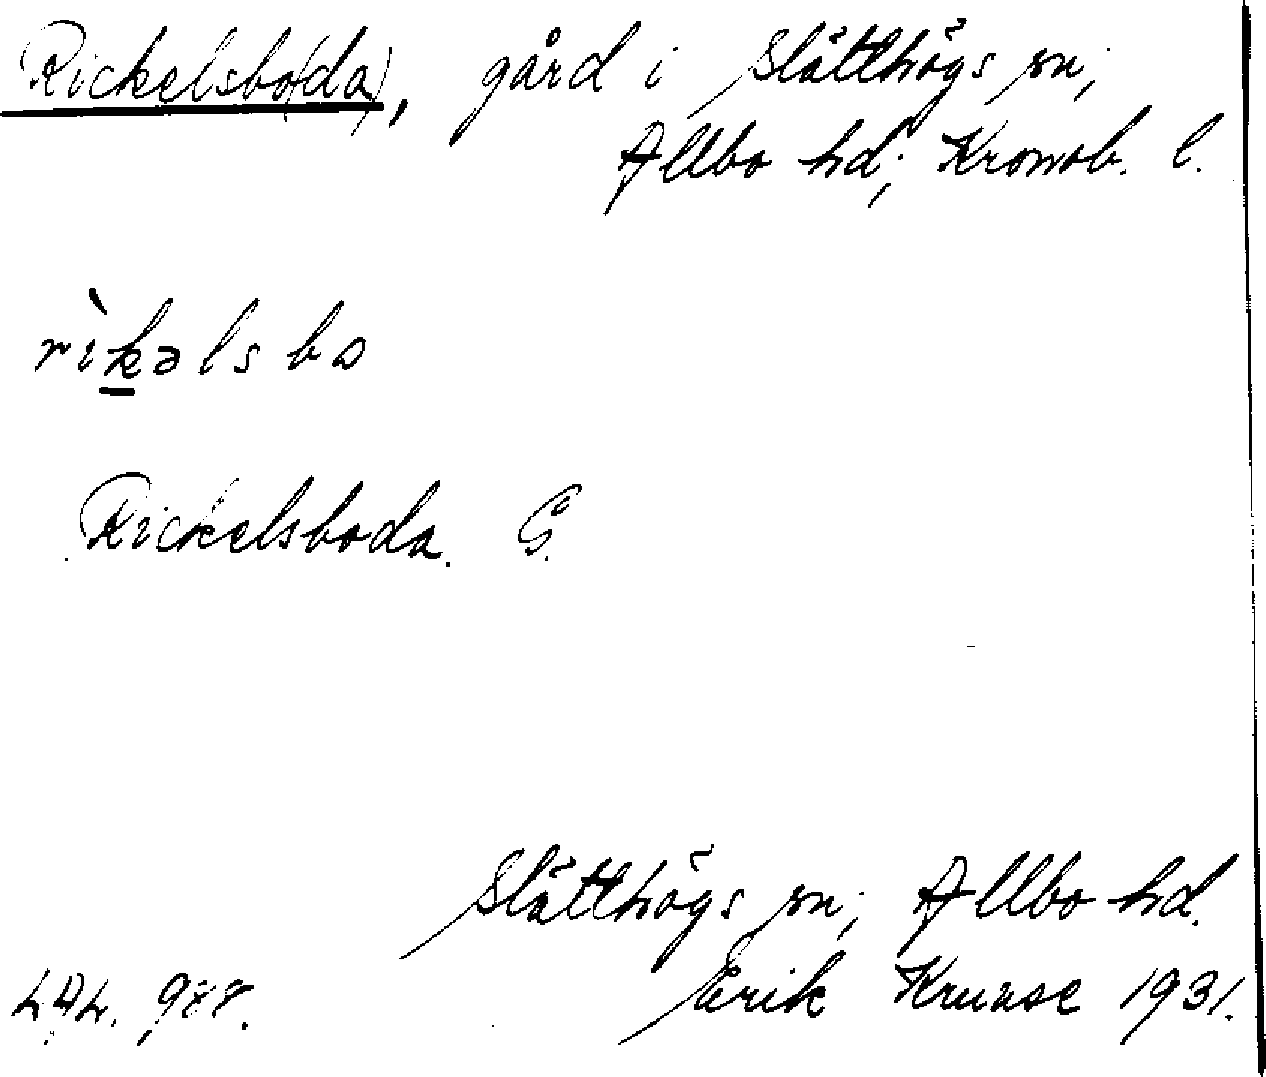 Rickelsbo(da), gård i Slätthögs sn,
Allbo hd; Kronob. l.
rìkəlsbo
Rickelsboda. G.
Slätthögs sn, Allbo hd.
LAL. 988. Erik Kruuse 1931.